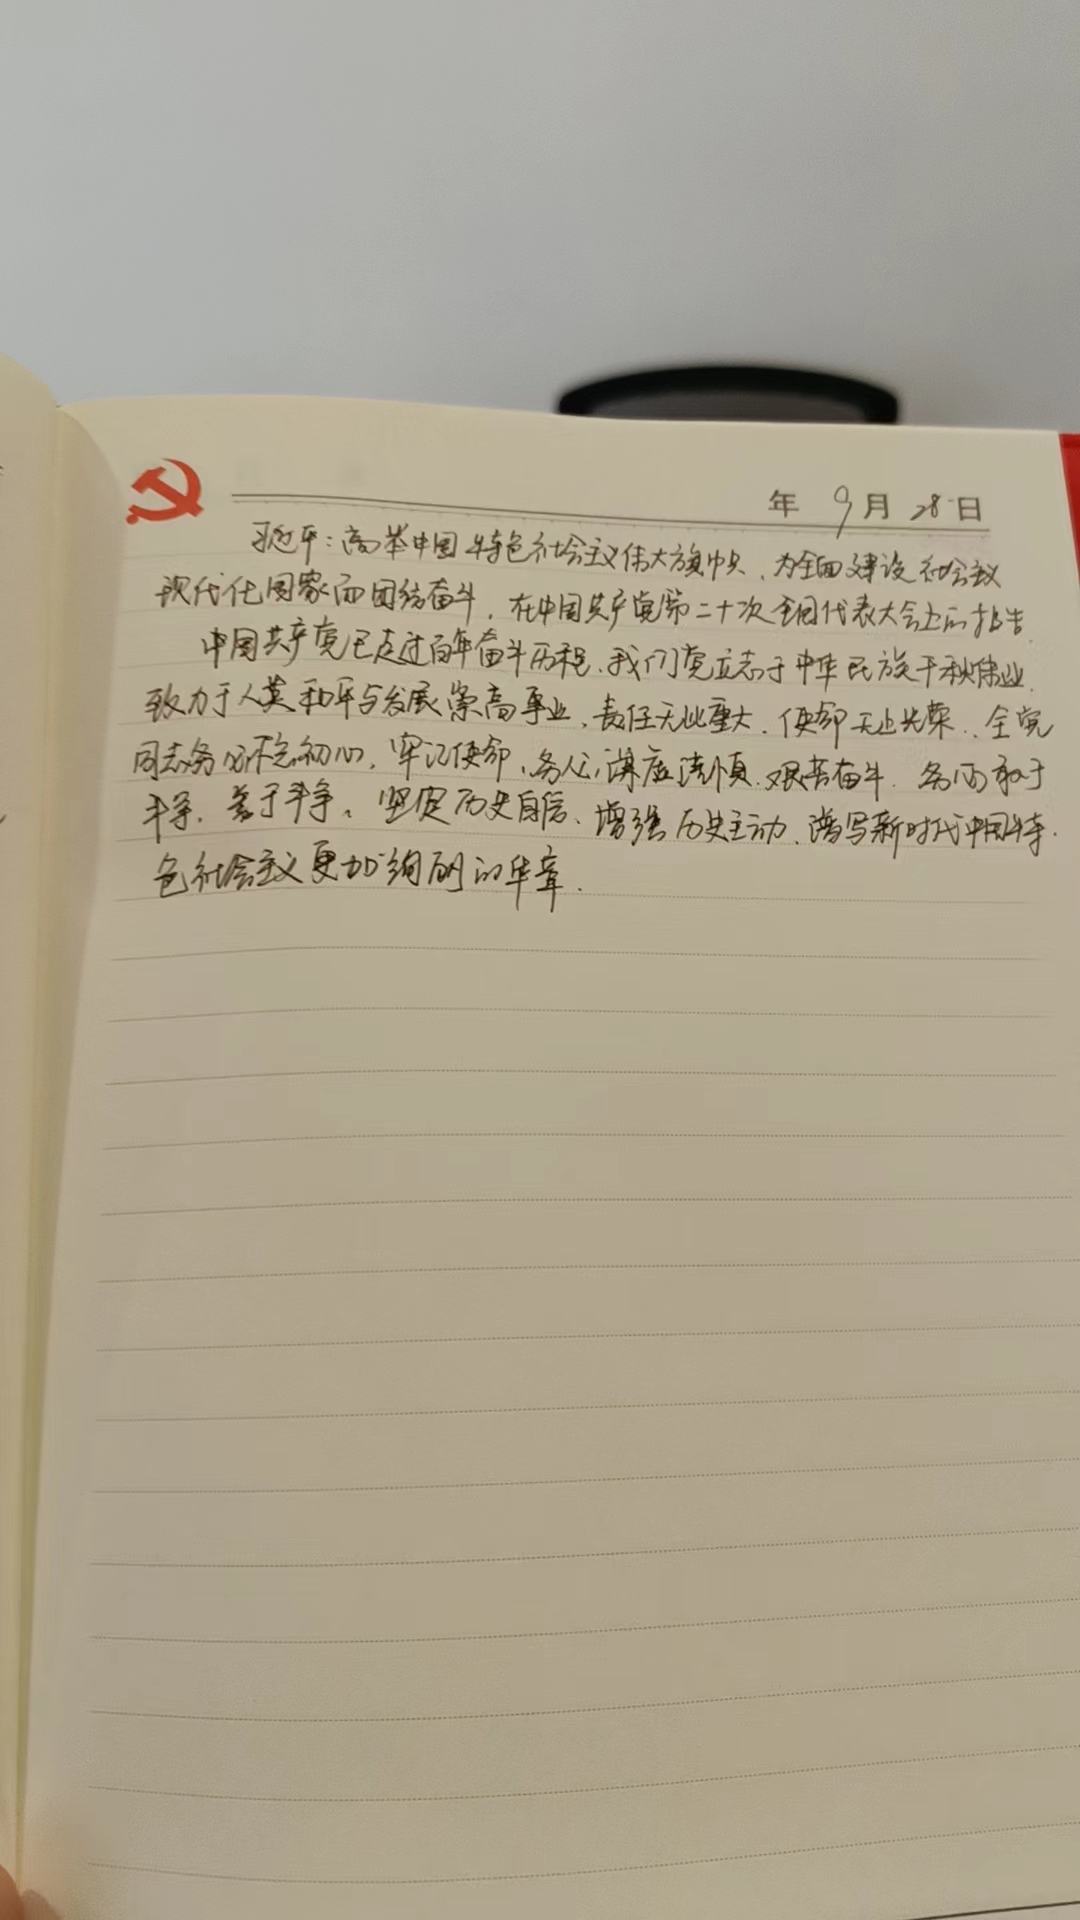 年 9月 28日
习近平：高举中国特色社会主义伟大旗中央，为全面建设社会主义
现代化国家而团结奋斗，在中国共产党第二十次全国代表大会上的报告
中国共产党已走过百年奋斗历程，我们党立志于中华民族千秋伟业，
致力于人类和平与发展崇高事业，责任无比重大，使命无上光荣，全党
同志务必不忘初心，牢记使命，务必谦虚谨慎，艰苦奋斗，务必敢于
斗争，善于斗争，坚定历史自信，增强历史主动，谱写新时代中国特
色社会主义更加绚丽的华章.